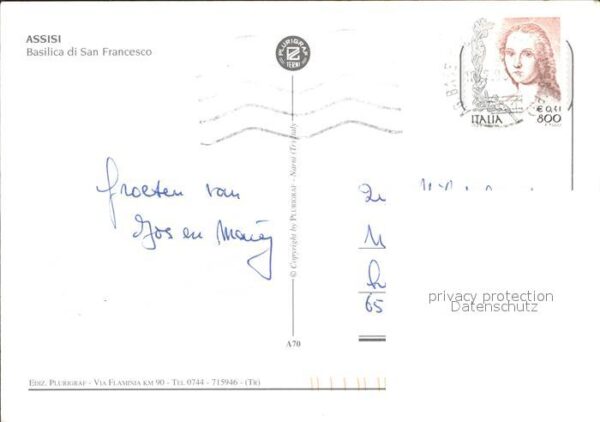 ASSISI
Basilica di San Francesco
PLURIGRAF
TERNI
€ 0,41
ITALIA 800
Groeten van
Jos en
65
© Copyright by PLURIGRAF - Narni (Tr) Italy
A70
privacy protection
Datenschutz
EDIZ. PLURIGRAF - VIA FLAMINIA KM 90 - TEL 0744 - 715946 - (TR)